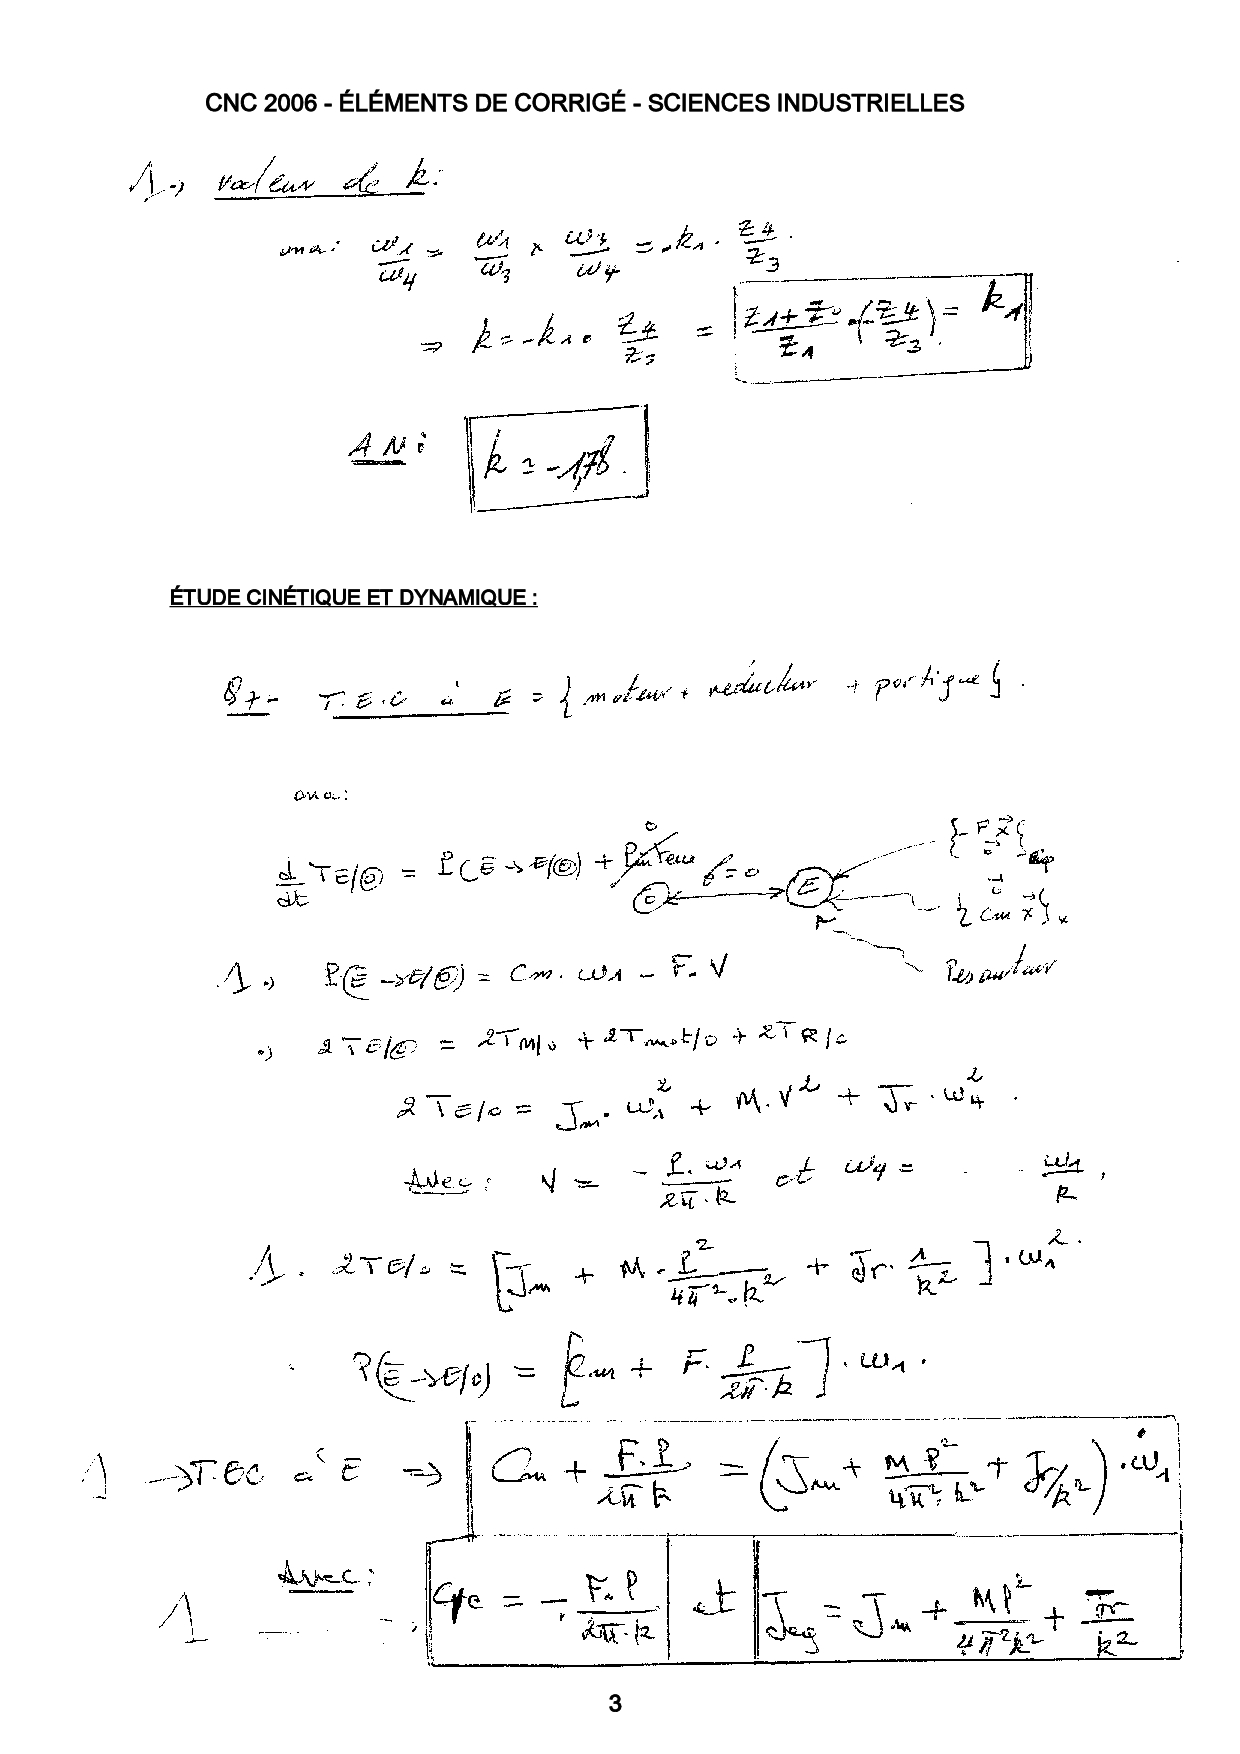 CNC 2006 - ÉLÉMENTS DE CORRIGÉ - SCIENCES INDUSTRIELLES
1 •) valeur de k:
ona: ω1/ω4 = ω1/ω3 × ω3/ω4 = -k1 · Z4/Z3 .
⇒ k = -k1 · Z4/Z3 = Z1+Z0/Z1 · (-Z4/Z3) = k1
AN: k = -1,78.
ÉTUDE CINÉTIQUE ET DYNAMIQUE :
87- T.E.C à E = { moteur + réducteur + portique } .
ona:
d/dt TE/0 = P(Ē → E/0) + Pinterieur 0
0 E P=0
{-F x⃗ 0⃗}
{0⃗ Cm x⃗}
Pesanteur
1 •) P(Ē → E/0) = Cm. ω1 - F. V
•) 2TE/0 = 2TM/0 + 2Tmot/0 + 2TR/0
2TE/0 = Jm. ω1² + M. V² + Jr . ω4² .
Avec : V = - P. ω1/2π. k et ω4 = ω1/k ,
1 . 2TE/0 = [Jm + M. P²/4π². k² + Jr. 1/k²] . ω1² .
P(Ē → E/0) = [Cm + F. P/2π. k] . ω1 .
1 → T.EC à E ⇒ Cm + F.P/2π k = (Jm + M P²/4π². k² + Jr/k²) . ω̇1
Avec :
1 Cre = - F. P/2π. k et Jeq = Jm + MP²/4π²k² + Jr/k²
3